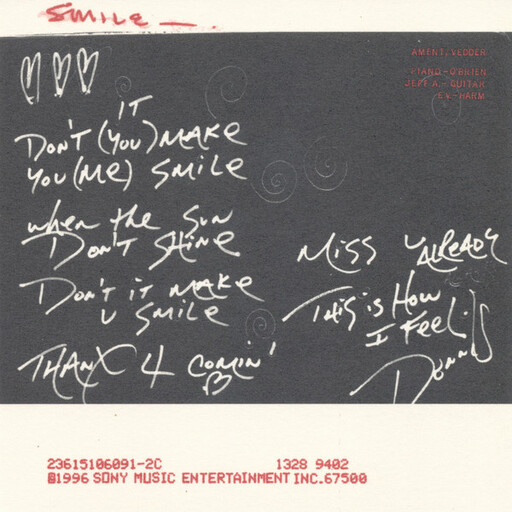 SMILE
AMENT, VEDDER
PIANO-O'BRIEN
JEFF A.-GUITAR
EV-HARM
IT
DON'T (YOU) MAKE
YOU (ME) SMILE
when the SUN
DON'T SHINE
DON'T it MAKE
U SMILE
THANX 4 COMIN'
MISS U ALREADY
THIS is How
I Feel
23615106091-2C 1328 9402
©1996 SONY MUSIC ENTERTAINMENT INC. 67500